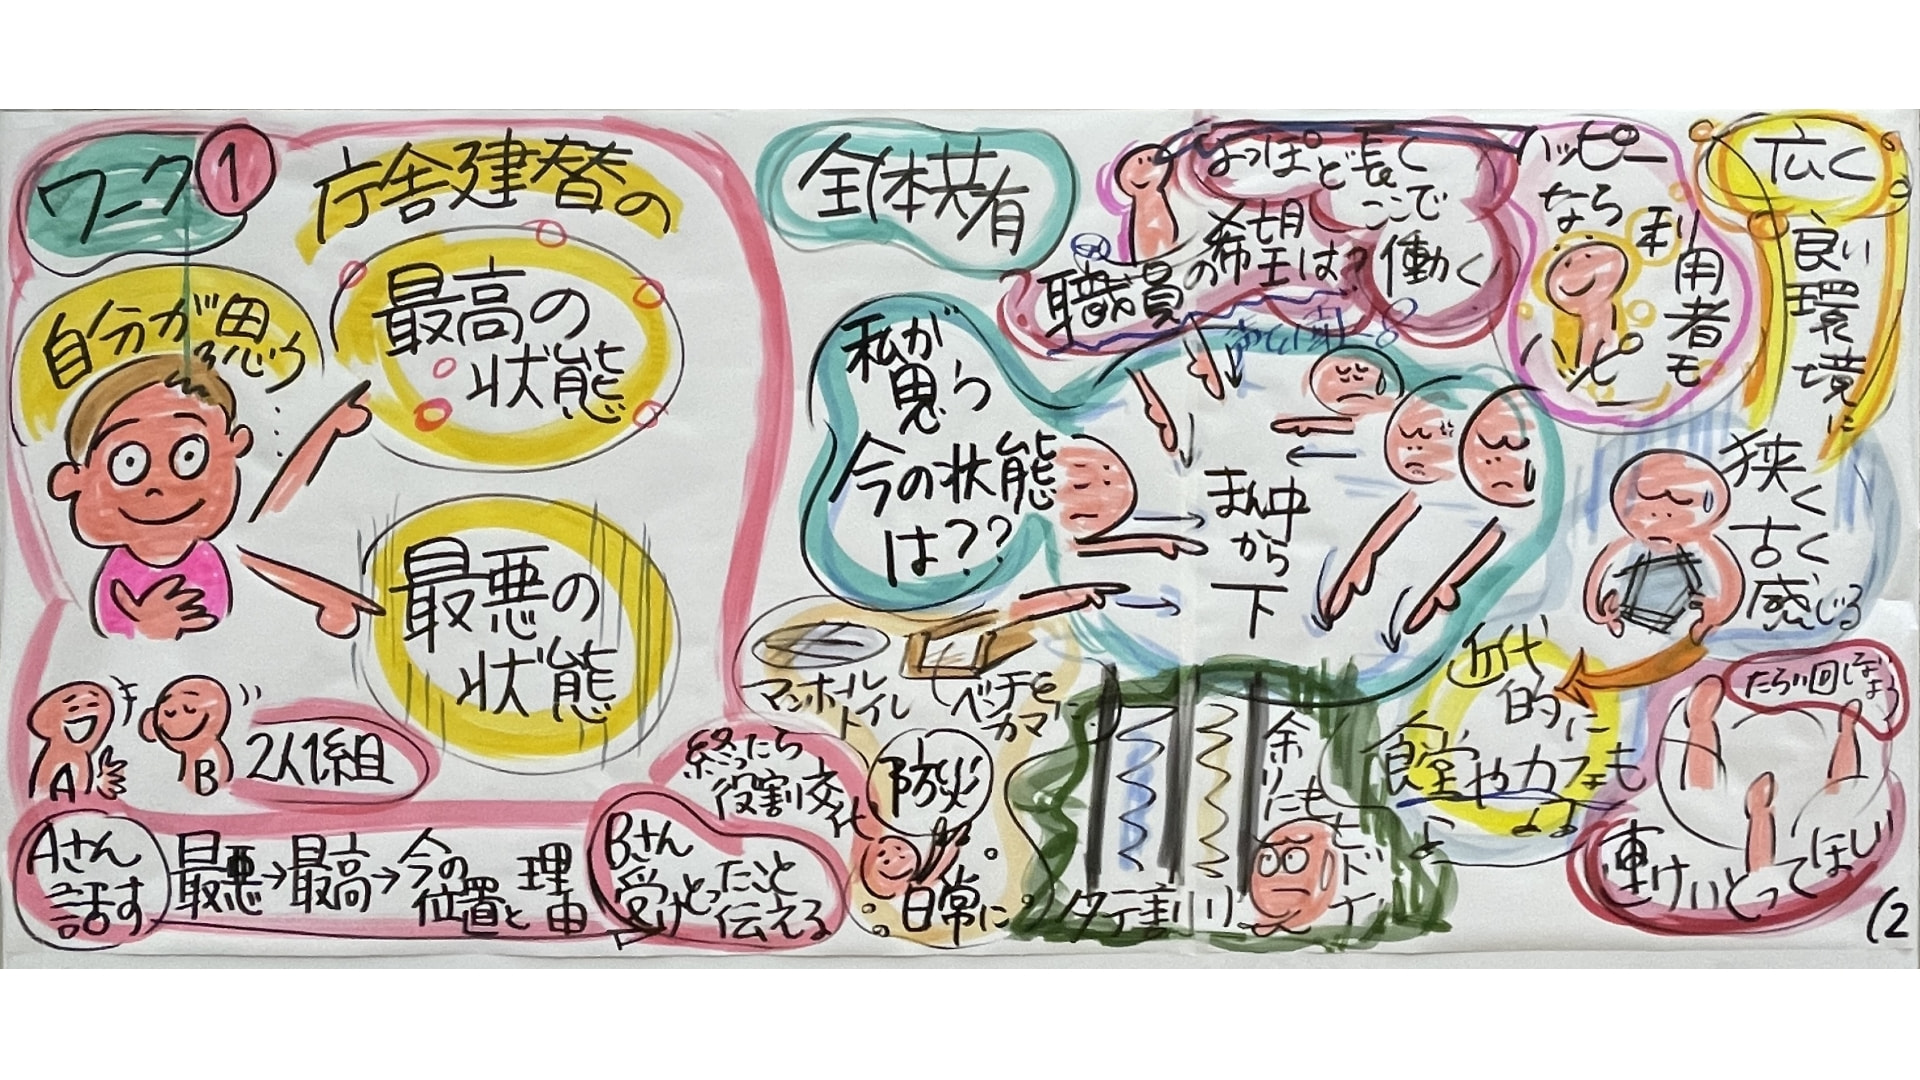 ワーク1
庁舎建替の
自分が思う
最高の
状態
最悪の
状態
A
B
2人1組
Aさん
話す
最悪→最高→今の
位置と
理由
Bさん
受けとったこと
伝える
終ったら
役割交代
全体共有
よっぽど長く
ここで
働く
職員の希望は?
ハッピー
なら
利用者も
ハッピー
広く
良い環境に
私が
思う
今の状態
は??
まん中
から
下
狭く
古く
感じる
マンホール
トイレ
ベンチも
カマドに
防災
日常に
タテ割り
余りにも
ヒドイ
近代
的に
食堂やカフェも
たらい回しなよう
連けいとってほしい
(2